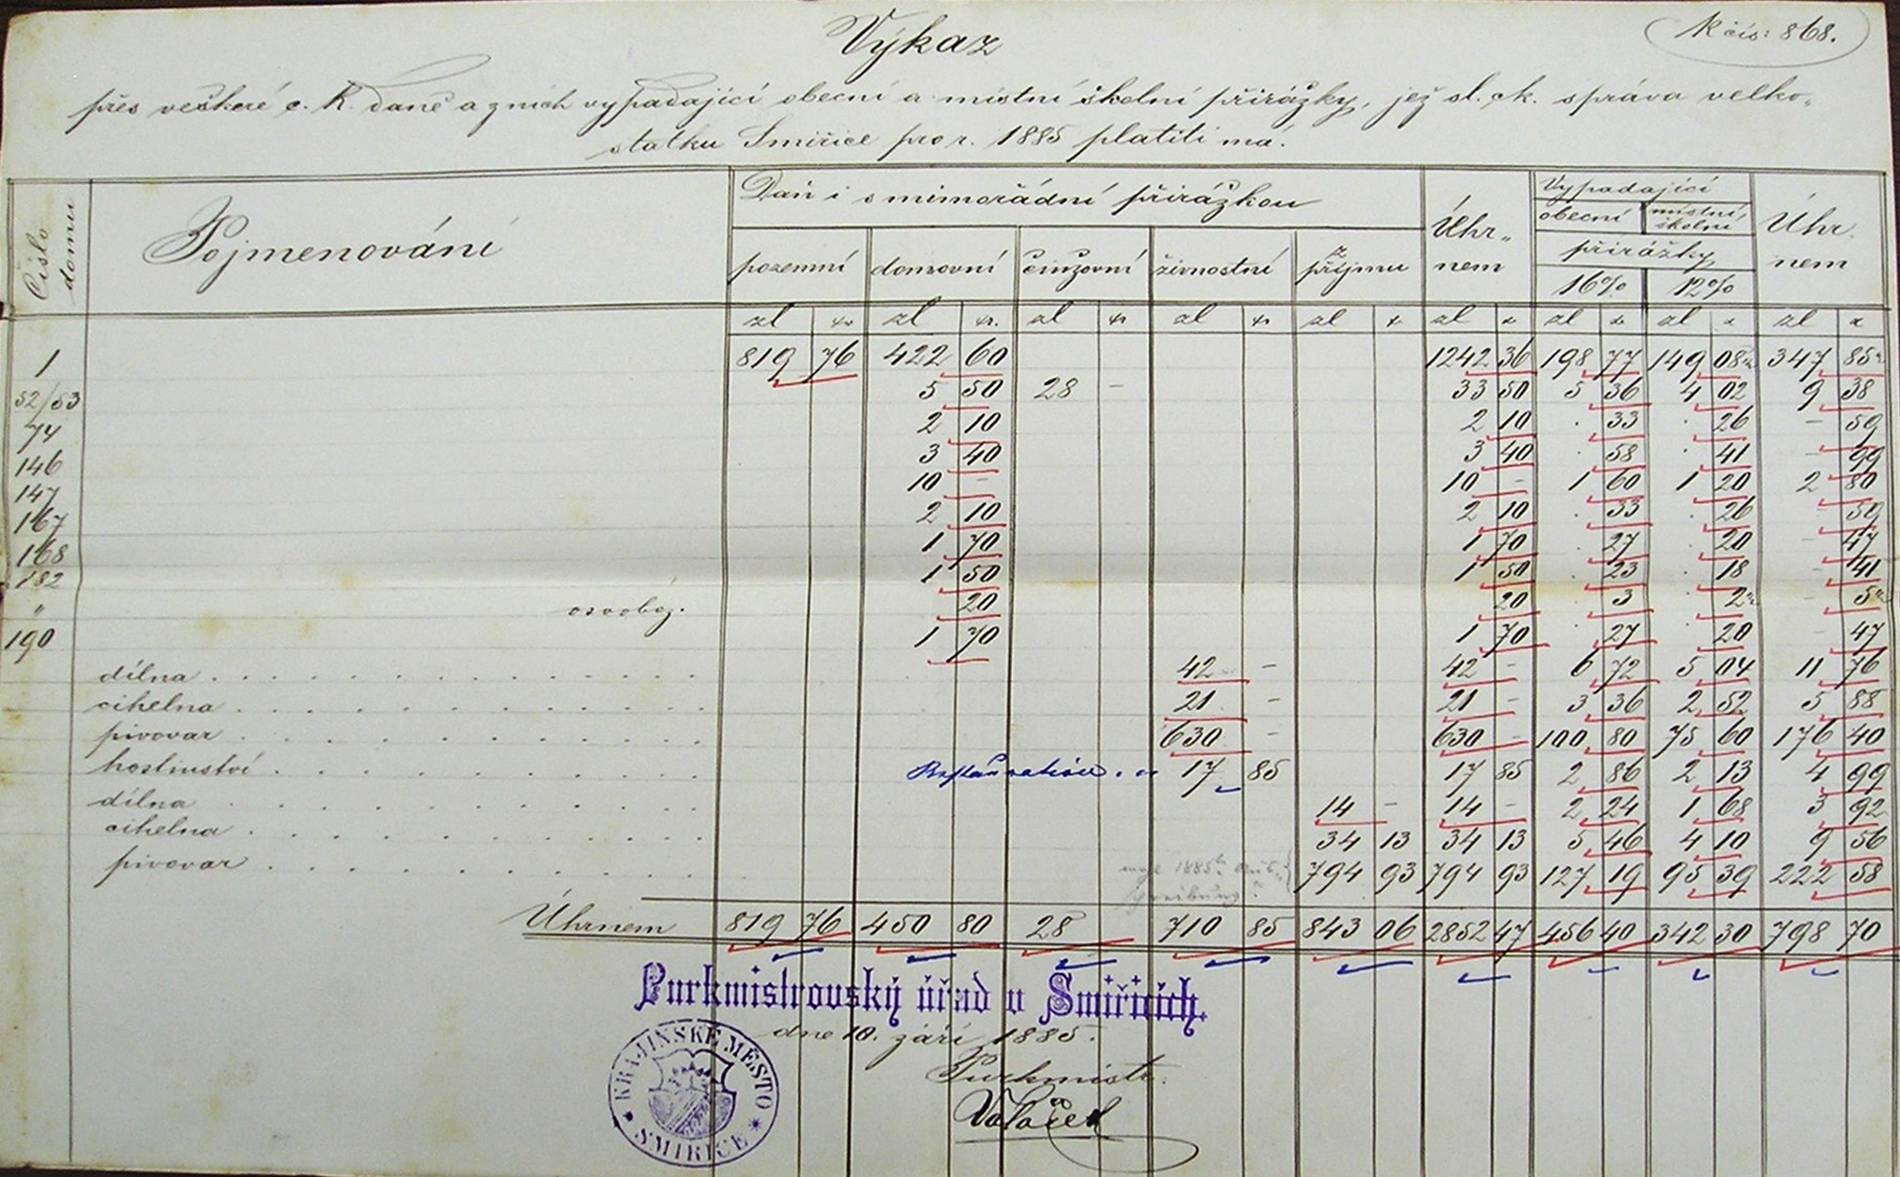 K čís: 868.
Výkaz
přes veškeré c. k. daně a z nich vypadající obecní a místní školní přirážky, jež sl. c. k. správa velko-
statku Smiřice pro r. 1885 platiti má.
Číslo domu Pojmenování Daň i s mimořádní přirážkou Úhr- nem Vypadající Úhr. nem
obecní místní školní
pozemní domovní činžovní živnostní z příjmu přirážky
16% 12%
zl kr zl kr. zl kr zl kr zl x zl x zl x zl x zl x
1 819 76 422 60 1242 36 198 77 149 08 347 85
52/53 5 50 28 - 33 50 5 36 4 02 9 38
74 2 10 2 10 . 33 . 26 - 59
146 3 40 3 40 . 58 . 41 - 99
147 10 - 10 - 1 60 1 20 2 80
167 2 10 2 10 . 33 . 26 - 59
168 1 70 1 70 . 27 . 20 - 47
182 1 50 1 50 . 23 . 18 - 41
" osvoboz. 20 20 . 3 . 2 - 5
190 1 70 1 70 . 27 . 20 47
dílna 42 - 42 - 6 72 5 04 11 76
cihelna 21 - 21 - 3 36 2 52 5 88
pivovar 630 - 630 - 100 80 75 60 176 40
hostinství Restauration 17 85 17 85 2 86 2 13 4 99
dílna 14 - 14 - 2 24 1 68 3 92
cihelna 34 13 34 13 5 46 4 10 9 56
pivovar 1885 794 93 794 93 127 19 95 39 222 58
Úhrnem 819 76 450 80 28 710 85 843 06 2852 47 456 40 342 30 798 70
Purkmistrovský úřad v Smiřicích.
dne 10. září 1885.
KRAJINSKÉ MĚSTO
SMIŘICE
Purkmistr:
Voláček